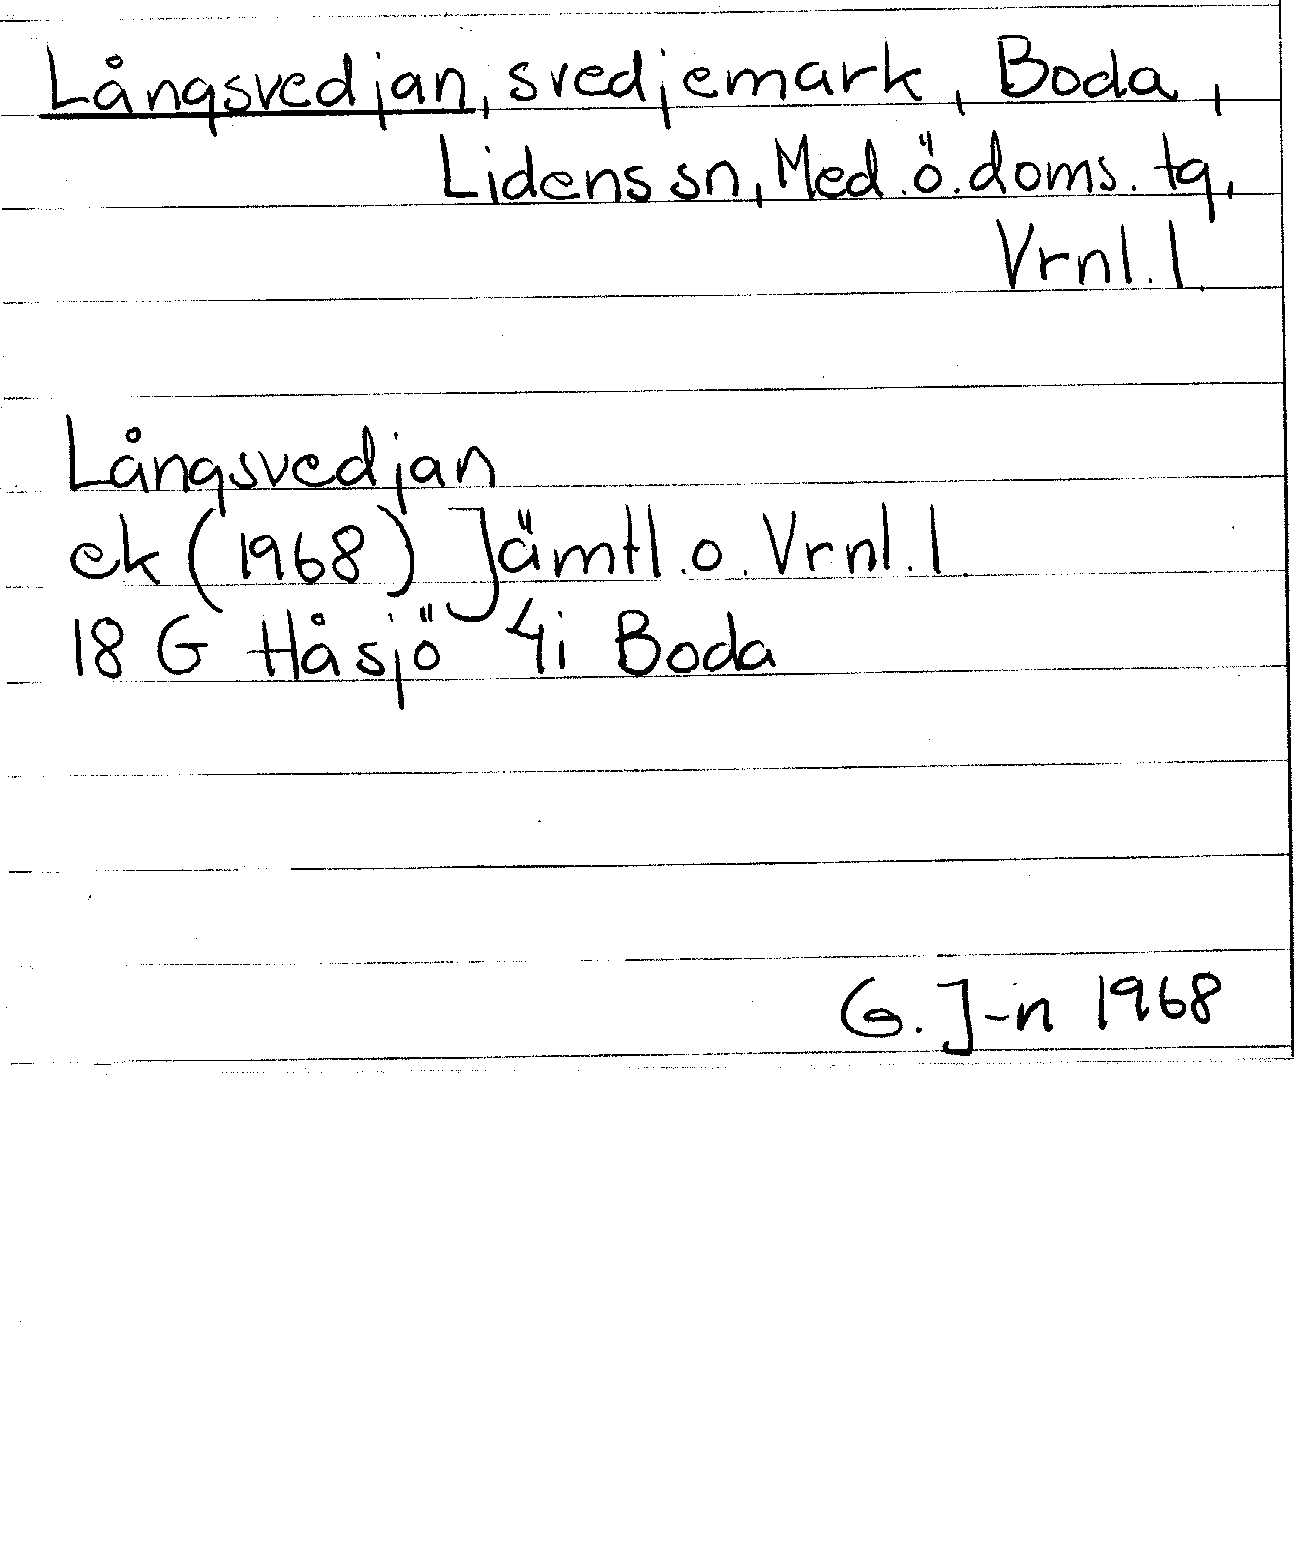 Långsvedjan, svedjemark, Boda,
Lidens sn, Med.ö.doms. tg,
Vrnl.l.
Långsvedjan
ek (1968) Jämtl.o.Vrnl.l.
18 G Håsjö 4i Boda
G.J-n 1968